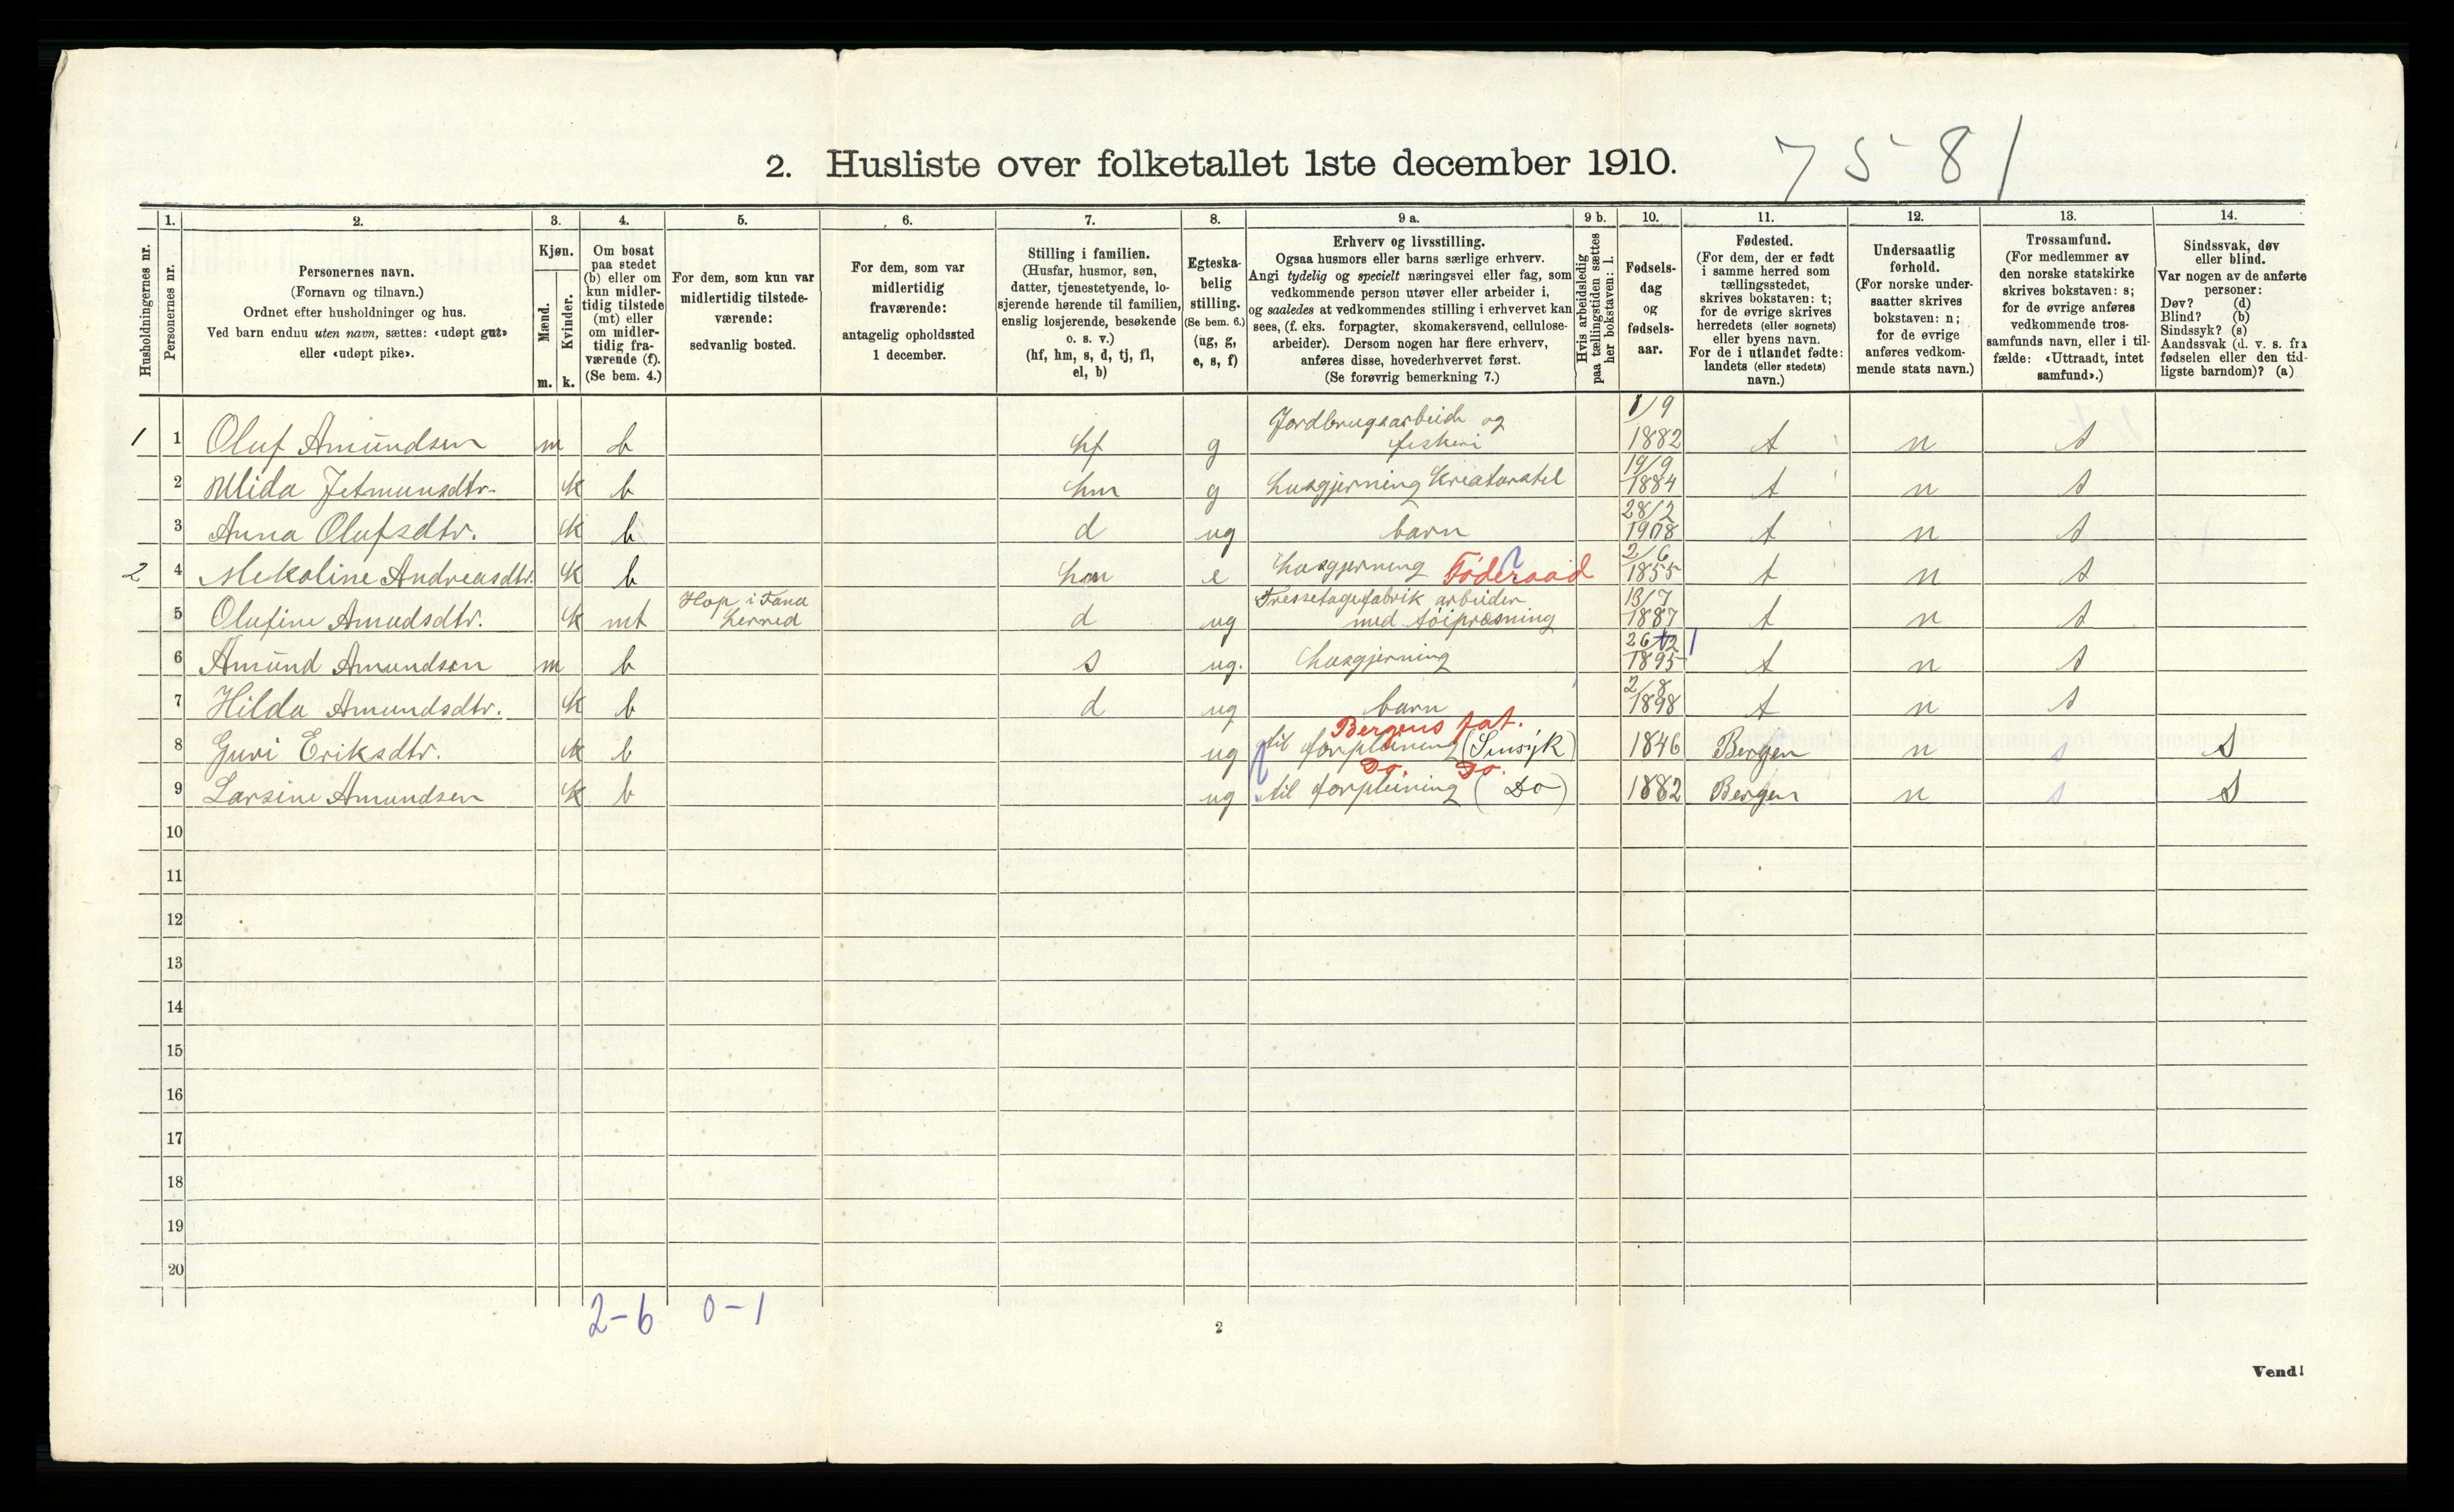 2. Husliste over folketallet 1ste december 1910.
7 5 8 1
Husholdningernes nr.
1. Personernes nr.
2. Personernes navn.
(Fornavn og tilnavn.)
Ordnet efter husholdninger og hus.
Ved barn endnu uten navn, sættes: «udøpt gut»
eller «udøpt pike».
3. Kjøn.
Mænd. m.
Kvinder. k.
4. Om bosat
paa stedet
(b) eller om
kun midler-
tidig tilstede
(mt) eller
om midler-
tidig fra-
værende (f).
(Se bem. 4.)
5. For dem, som kun var
midlertidig tilstede-
værende:
sedvanlig bosted.
6. For dem, som var
midlertidig
fraværende:
antagelig opholdssted
1 december.
7. Stilling i familien.
(Husfar, husmor, søn,
datter, tjenestetyende, lo-
sjerende hørende til familien,
enslig losjerende, besøkende
o. s. v.)
(hf, hm, s, d, tj, fl,
el, b)
8. Egteska-
belig
stilling.
(Se bem. 6.)
(ug, g,
e, s, f)
9 a. Erhverv og livsstilling.
Ogsaa husmors eller barns særlige erhverv.
Angi tydelig og specielt næringsvei eller fag, som
vedkommende person utøver eller arbeider i,
og saaledes at vedkommendes stilling i erhvervet kan
sees, (f. eks. forpagter, skomakersvend, cellulose-
arbeider). Dersom nogen har flere erhverv,
anføres disse, hovederhvervet først.
(Se forøvrig bemerkning 7.)
9 b. Hvis arbeidsledig
paa tællingstiden sættes
her bokstaven: l.
10. Fødsels-
dag
og
fødsels-
aar.
11. Fødested.
(For dem, der er født
i samme herred som
tællingsstedet,
skrives bokstaven: t;
for de øvrige skrives
herredets (eller sognets)
eller byens navn.
For de i utlandet fødte:
landets (eller stedets)
navn.)
12. Undersaatlig
forhold.
(For norske under-
saatter skrives
bokstaven: n;
for de øvrige
anføres vedkom-
mende stats navn.)
13. Trossamfund.
(For medlemmer av
den norske statskirke
skrives bokstaven: s;
for de øvrige anføres
vedkommende tros-
samfunds navn, eller i til-
fælde: «Uttraadt, intet
samfund».)
14. Sindssvak, døv
eller blind.
Var nogen av de anførte
personer:
Døv? (d)
Blind? (b)
Sindssyk? (s)
Aandssvak (d. v. s. fra
fødselen eller den tid-
ligste barndom)? (a)
1 1 Oluf Amundsen m b hf g Jordbrugsarbeide og fiskeri 1/9 1882 t n s
2 Alida Jetmunsdtr. k b hm g husgjerning Kreaturstel 19/9 1884 t n s
3 Anna Olufsdtr. k b d ug barn 28/2 1908 t n s
2 4 Mekoline Andreasdtr. k b hm e husgjerning Föderaad 2/6 1855 t n s
5 Olufine Amudsdtr. k mt Hop i Fana herred d ug Tressetagefabrik arbeider med tøipræsning 13/7 1887 t n s
6 Amund Amundsen m b s ug. husgjerning 26/12 1 1895 t n s
7 Hilda Amundsdtr. k b d ug barn 2/8 1898 t n s
8 Guri Eriksdtr. k b ug til forpleining (Sinsyk) Bergens fat. 1846 Bergen n s S
9 Larsine Amundsen k b ug til forpleining (Do) Do. Do. 1882 Bergen n s S
10
11
12
13
14
15
16
17
18
19
20
2-6 0-1
2
Vend!